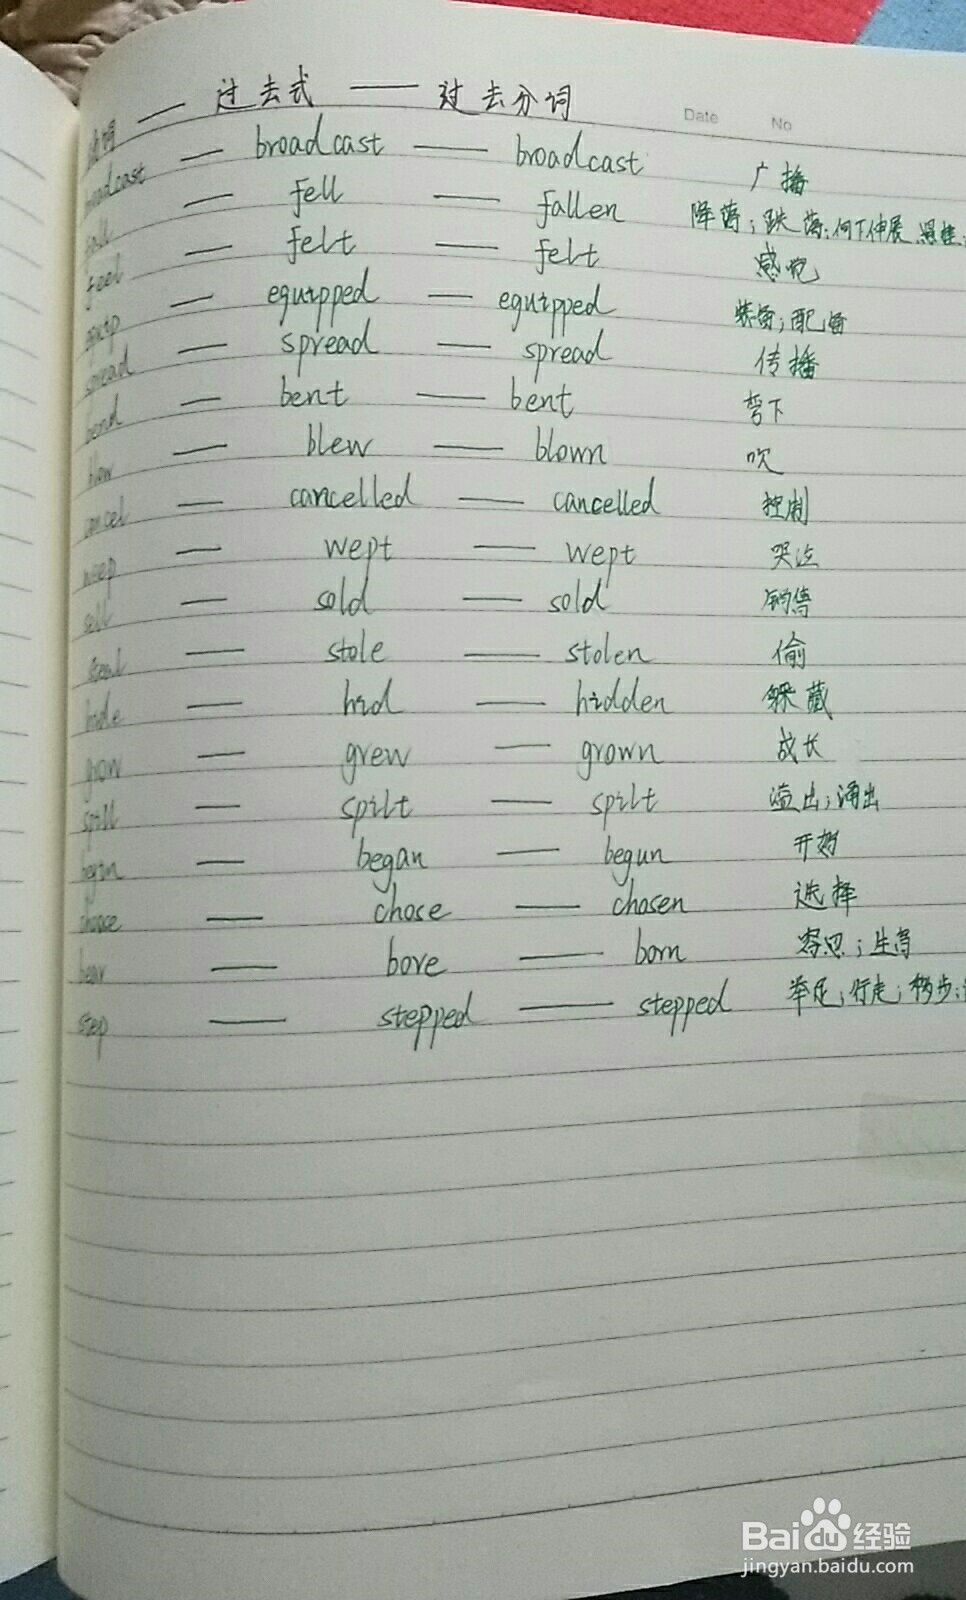 过去式 — 过去分词
Date No
broadcast — broadcast — broadcast 广播
fall — fell — fallen 降落；跌落；向下伸展 悬挂
feel — felt — felt 感觉
equip — equipped — equipped 装备；配备
spread — spread — spread 传播
bend — bent — bent 弯下
blow — blew — blown 吹
cancel — cancelled — cancelled 控制
weep — wept — wept 哭泣
sell — sold — sold 销售
steal — stole — stolen 偷
hide — hid — hidden 躲藏
grow — grew — grown 成长
spill — spilt — spilt 溢出；涌出
begin — began — begun 开始
choose — chose — chosen 选择
bear — bore — born 容忍；生育
step — stepped — stepped 举足；行走；移步；
Baidu 经验
jingyan.baidu.com